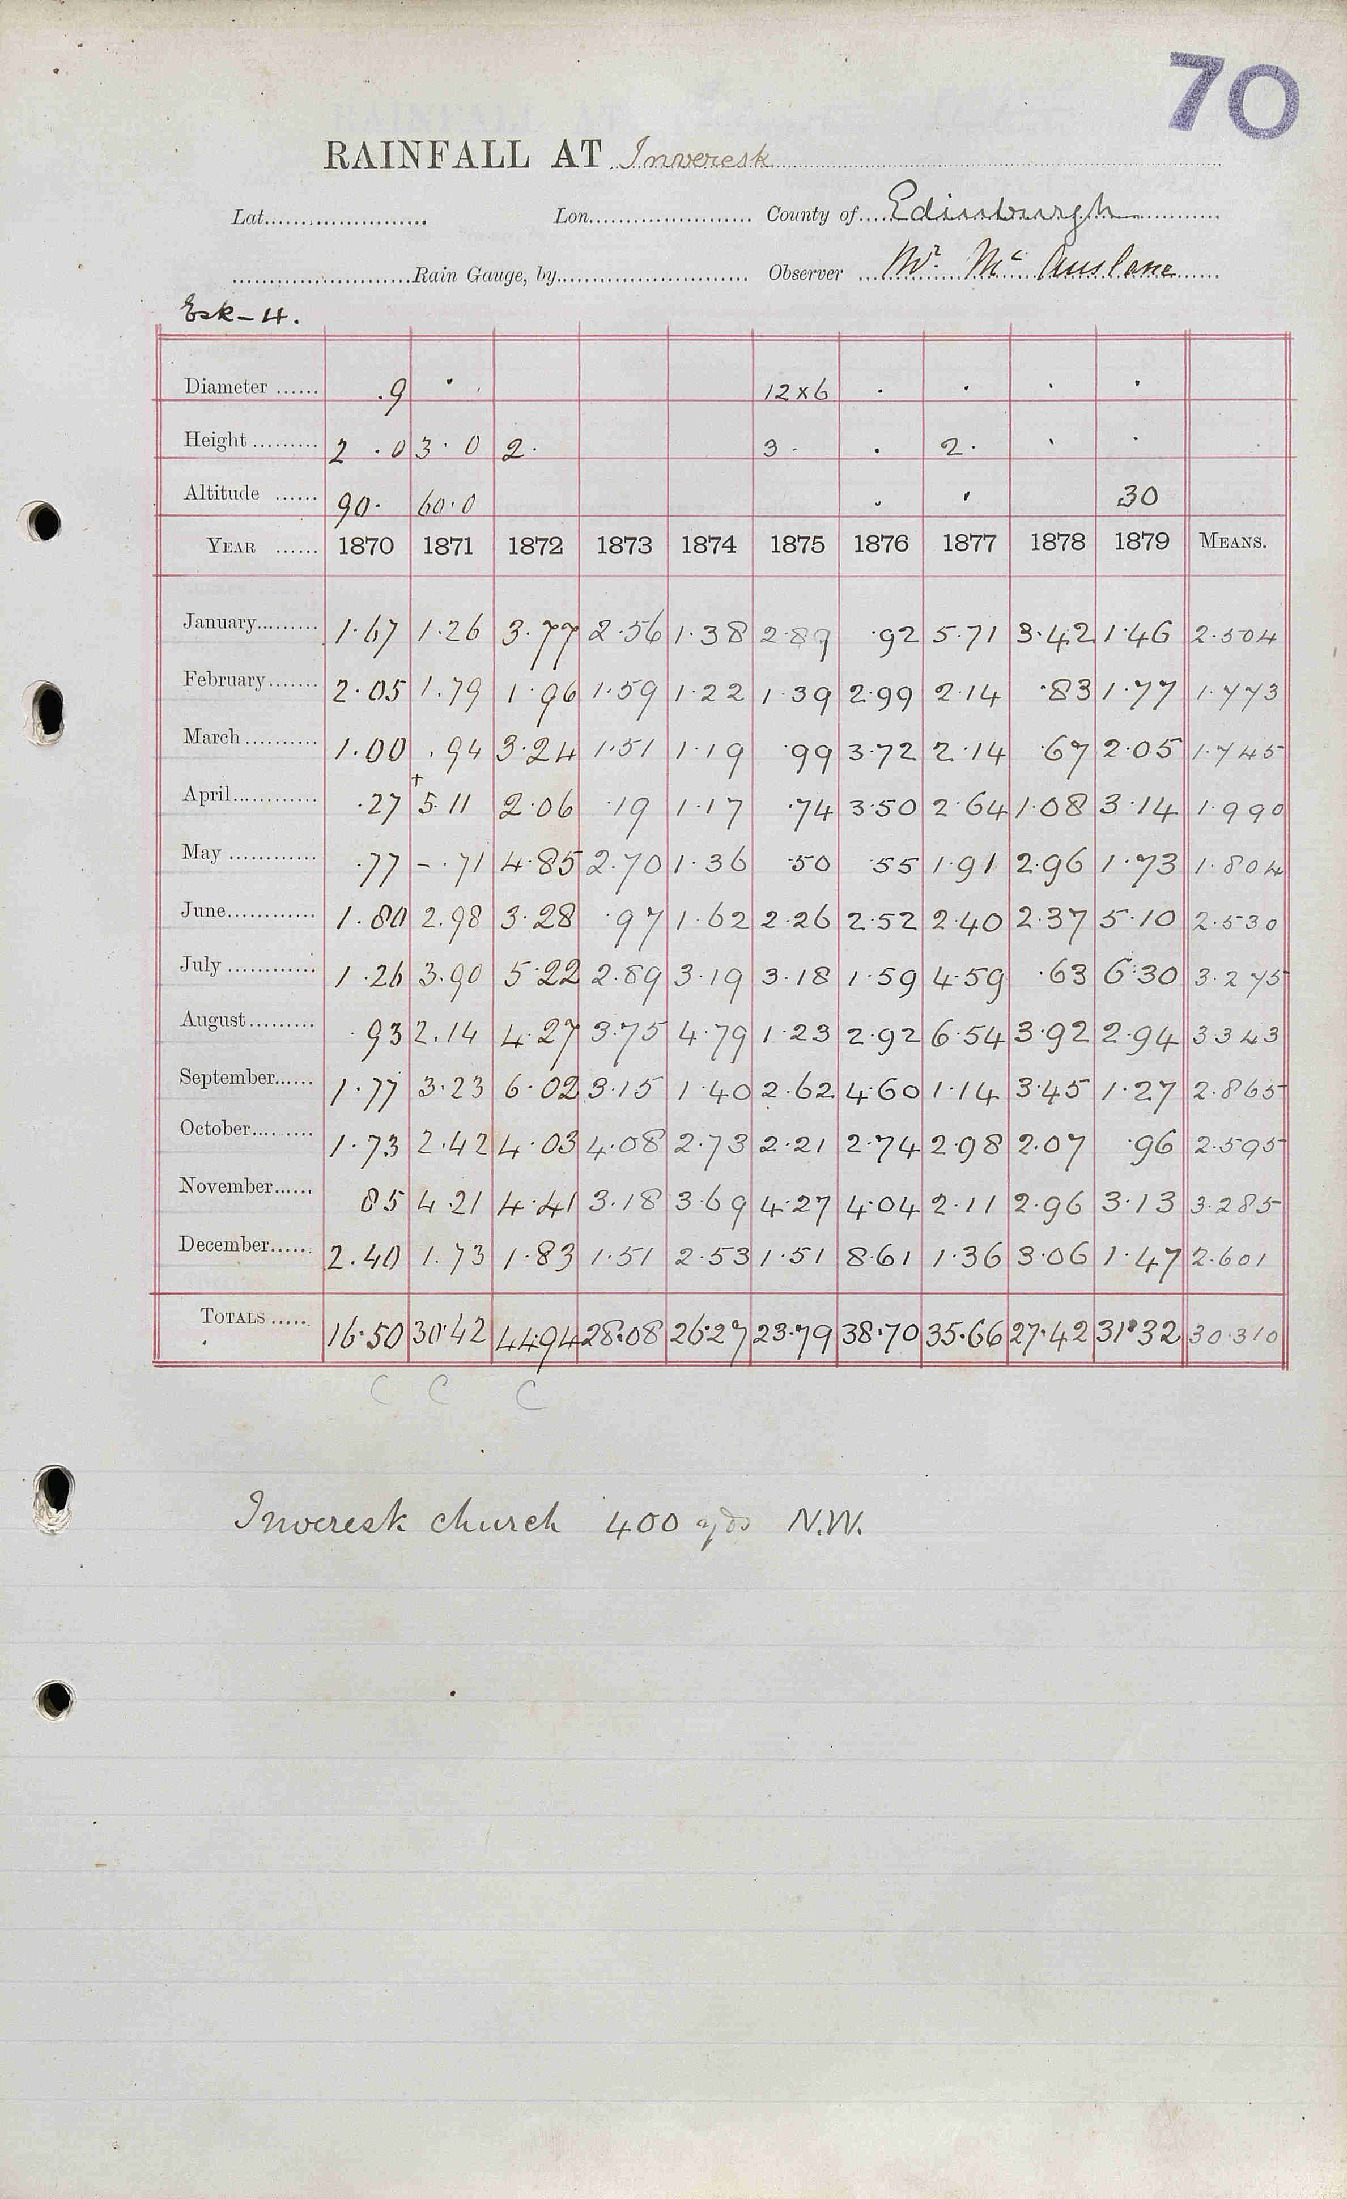 70
RAINFALL AT Inveresk
Lat. Lon. County of Edinburgh
Rain Gauge, by Observer Mr. Mc Auslane
Esk-4.
Diameter .9 · 12x6 · · · ·
Height 2 .0 3.0 2. 3. · 2. · ·
Altitude 90. 60.0 · · 30
YEAR 1870 1871 1872 1873 1874 1875 1876 1877 1878 1879 MEANS.
January 1.67 1.26 3.77 2.56 1.38 2.89 .92 5.71 3.42 1.46 2.504
February 2.05 1.79 1.96 1.59 1.22 1.39 2.99 2.14 .83 1.77 1.773
March 1.00 .94 3.24 1.51 1.19 .99 3.72 2.14 .67 2.05 1.745
April .27 +5.11 2.06 .19 1.17 .74 3.50 2.64 1.08 3.14 1.990
May .77 -.71 4.85 2.70 1.36 .50 .55 1.91 2.96 1.73 1.804
June 1.80 2.98 3.28 .97 1.62 2.26 2.52 2.40 2.37 5.10 2.530
July 1.26 3.90 5.22 2.89 3.19 3.18 1.59 4.59 .63 6.30 3.275
August .93 2.14 4.27 3.75 4.79 1.23 2.92 6.54 3.92 2.94 3343
September 1.77 3.23 6.02 3.15 1.40 2.62 4.60 1.14 3.45 1.27 2.865
October 1.73 2.42 4.03 4.08 2.73 2.21 2.74 2.98 2.07 .96 2.595
November 85 4.21 4.41 3.18 3.69 4.27 4.04 2.11 2.96 3.13 3.285
December 2.40 1.73 1.83 1.51 2.53 1.51 8.61 1.36 3.06 1.47 2.601
TOTALS 16.50 30.42 44.94 28.08 26.27 23.79 38.70 35.66 27.42 31.32 30.310
C C C
Inveresk church 400 yds N.W.